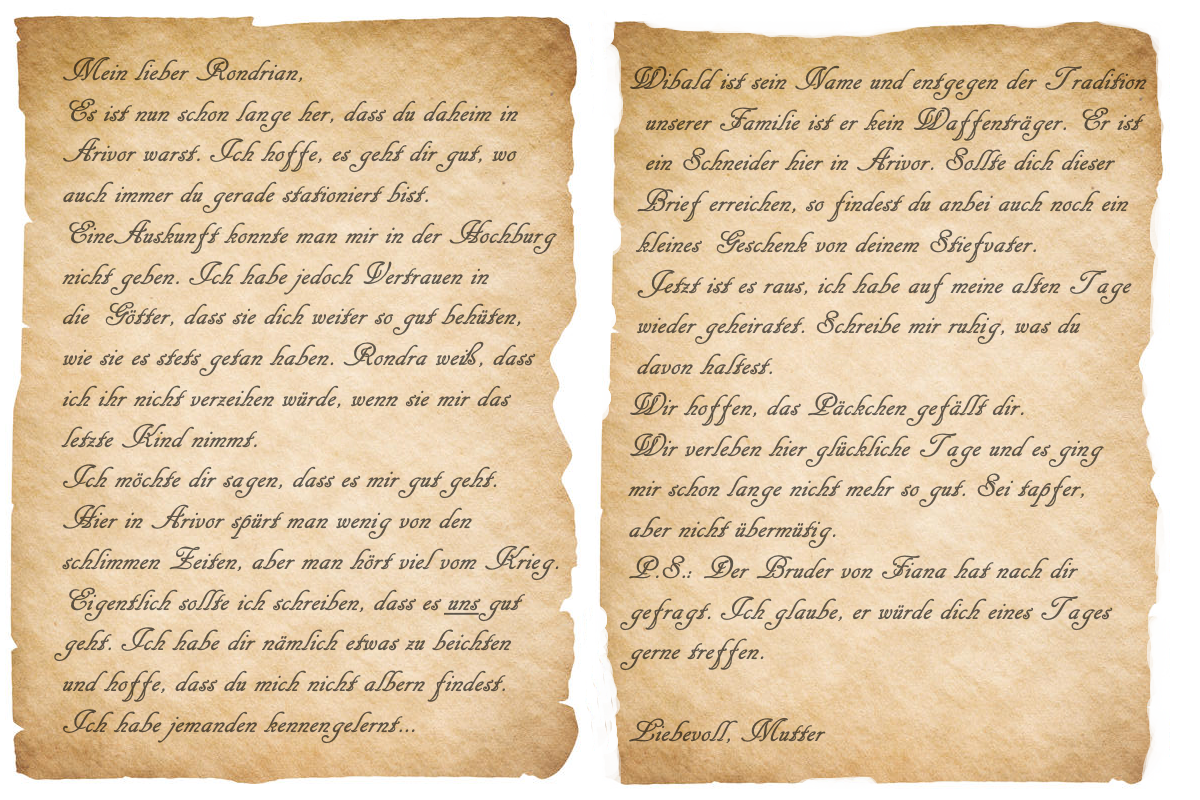 Mein lieber Rondrian,
Es ist nun schon lange her, dass du daheim in
Arivor warst. Ich hoffe, es geht dir gut, wo
auch immer du gerade stationiert bist.
Eine Auskunft konnte man mir in der Hochburg
nicht geben. Ich habe jedoch Vertrauen in
die Götter, dass sie dich weiter so gut behüten,
wie sie es stets getan haben. Rondra weiß, dass
ich ihr nicht verzeihen würde, wenn sie mir das
letzte Kind nimmt.
Ich möchte dir sagen, dass es mir gut geht.
Hier in Arivor spürt man wenig von den
schlimmen Zeiten, aber man hört viel vom Krieg.
Eigentlich sollte ich schreiben, dass es uns gut
geht. Ich habe dir nämlich etwas zu beichten
und hoffe, dass du mich nicht albern findest.
Ich habe jemanden kennengelernt...
Wibald ist sein Name und entgegen der Tradition
unserer Familie ist er kein Waffenträger. Er ist
ein Schneider hier in Arivor. Sollte dich dieser
Brief erreichen, so findest du anbei auch noch ein
kleines Geschenk von deinem Stiefvater.
Jetzt ist es raus, ich habe auf meine alten Tage
wieder geheiratet. Schreibe mir ruhig, was du
davon haltest.
Wir hoffen, das Päckchen gefällt dir.
Wir verleben hier glückliche Tage und es ging
mir schon lange nicht mehr so gut. Sei tapfer,
aber nicht übermütig.
P.S.: Der Bruder von Fiana hat nach dir
gefragt. Ich glaube, er würde dich eines Tages
gerne treffen.
Liebevoll, Mutter